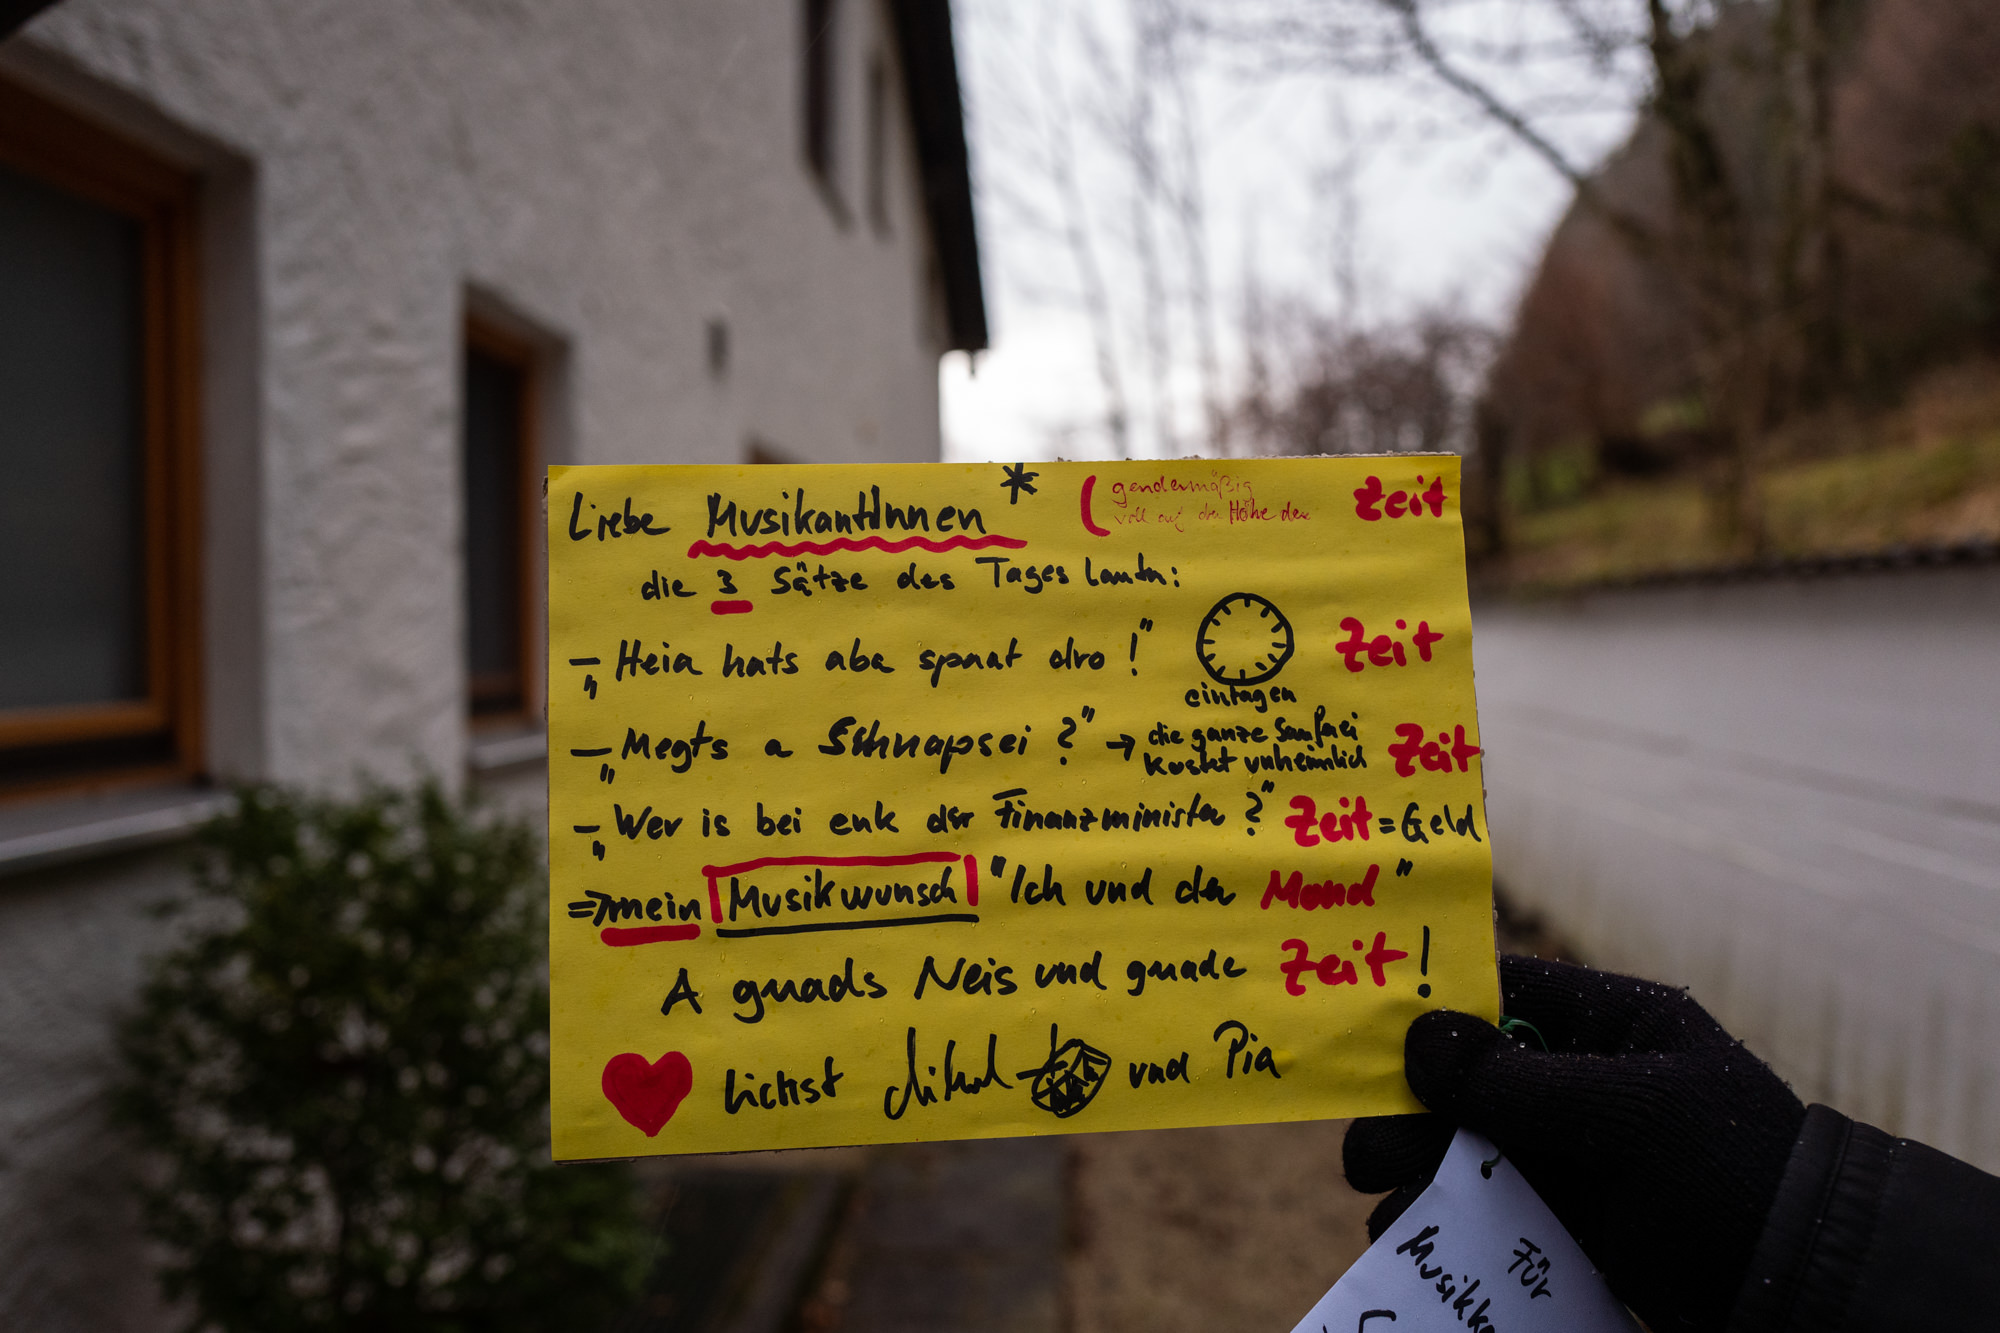 Liebe MusikantInnen * ( gendermäßig
voll auf der Höhe der Zeit
die 3 Sätze des Tages lautn:
- „Heia hats aba spaat dro!" Zeit
eintragen
- „Megts a Schnapsei?" → die ganze Sauferei
kostet unheimlich Zeit
- „Wer is bei enk der Finanzminister?" Zeit = Geld
⇒ mein Musikwunsch "Ich und der Mond"
A guads Neis und guade Zeit!
lichst und Pia
Für